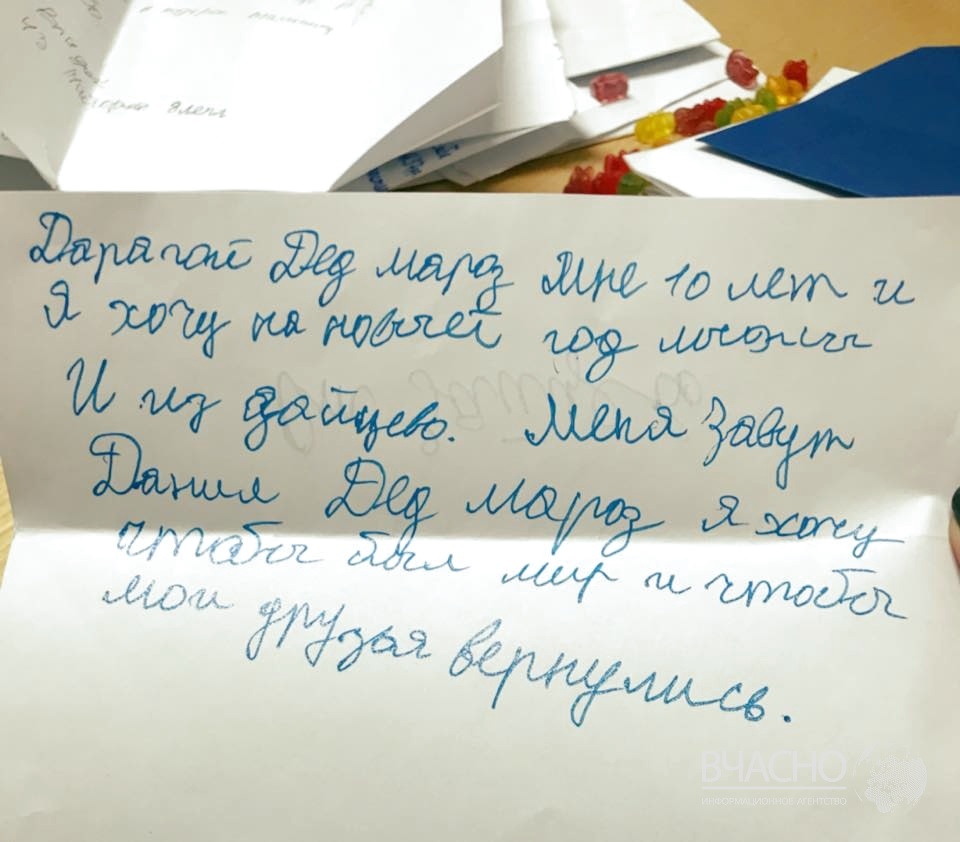 Дарагой Дед мароз Мне 10 лет и
Я хочу на новыей год лыжы
И из зайцево. Меня Завут
Данил Дед Мароз я хочу
чтобы был мир и чтобы
мои друзья вернулись.
ВЧАСНО
ИНФОРМАЦИОННОЕ АГЕНТСТВО